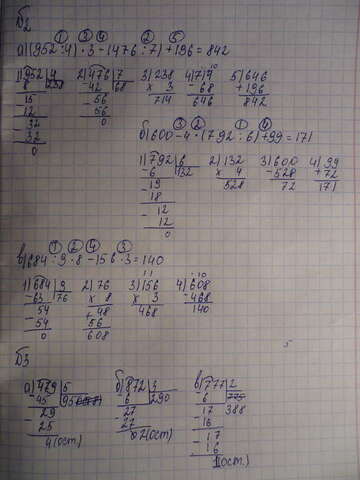 Б2
① ③ ④ ② ⑤
а)(952:4)·3-(476:7)+196=842
1)952 4 2)476 7 3)238 4)714 5)646
8 238 -42 68 × 3 -68 +196
15 56 714 646 842
12 -56
32 0
32
0
③ ② ① ④
б)600-4·(792:6)+99=171
1)792 6 2)132 3)600 4)99
-6 132 × 4 -528 +72
19 528 72 171
-18
12
-12
0
① ② ④ ③
в)684:9·8-156·3=140
1)684 9 2)76 3)156 4)608
-63 76 × 8 × 3 -468
54 +48 468 140
-54 56
0 608
Б3
а)479 5 б)872 3 в)777 2
-45 95 -6 290 -6 388
29 27 17
-25 -27 -16
4(ост) 02(ост) 17
-16
1(ост.)